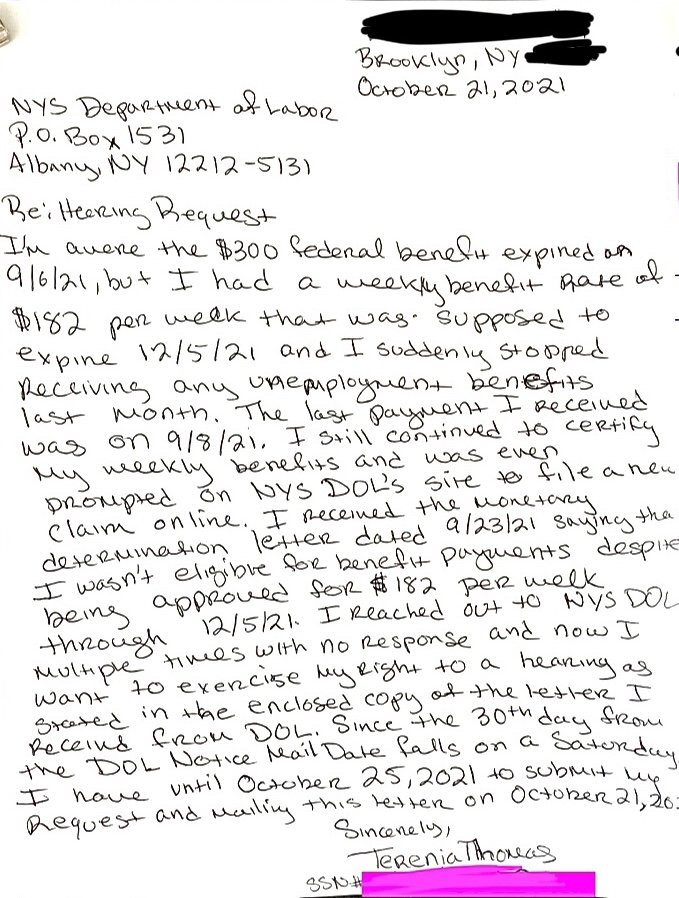 Brooklyn, NY
October 21, 2021
NYS Department of Labor
P.O. Box 1531
Albany, NY 12212-5131
Re: Heering Request
I'm avere the $300 federal benefit expired on
9/6/21, but I had a weekly benefit rate of
$182 per week that was supposed to
expire 12/5/21 and I suddenly stopped
receiving any unemployment benefits
last month. The last payment I received
was on 9/8/21. I still continued to certify
my weekly benefits and was even
prompted on NYS DOL's site to file a new
claim online. I received the monetary
determination letter dated 9/23/21 saying tha
I wasn't eligible for benefit payments despite
being approved for $182 per week
through 12/5/21. I reached out to NYS DOL
multiple times with no response and now I
want to exercise my right to a hearing as
stated in the enclosed copy of the letter I
receivd from DOL. Since the 30th day from
the DOL Notice Mail Date falls on a Saturday
I have until October 25, 2021 to submit my
request and mailing this letter on October 21, 20
Sincerely,
Terenia Thomas
SSN#